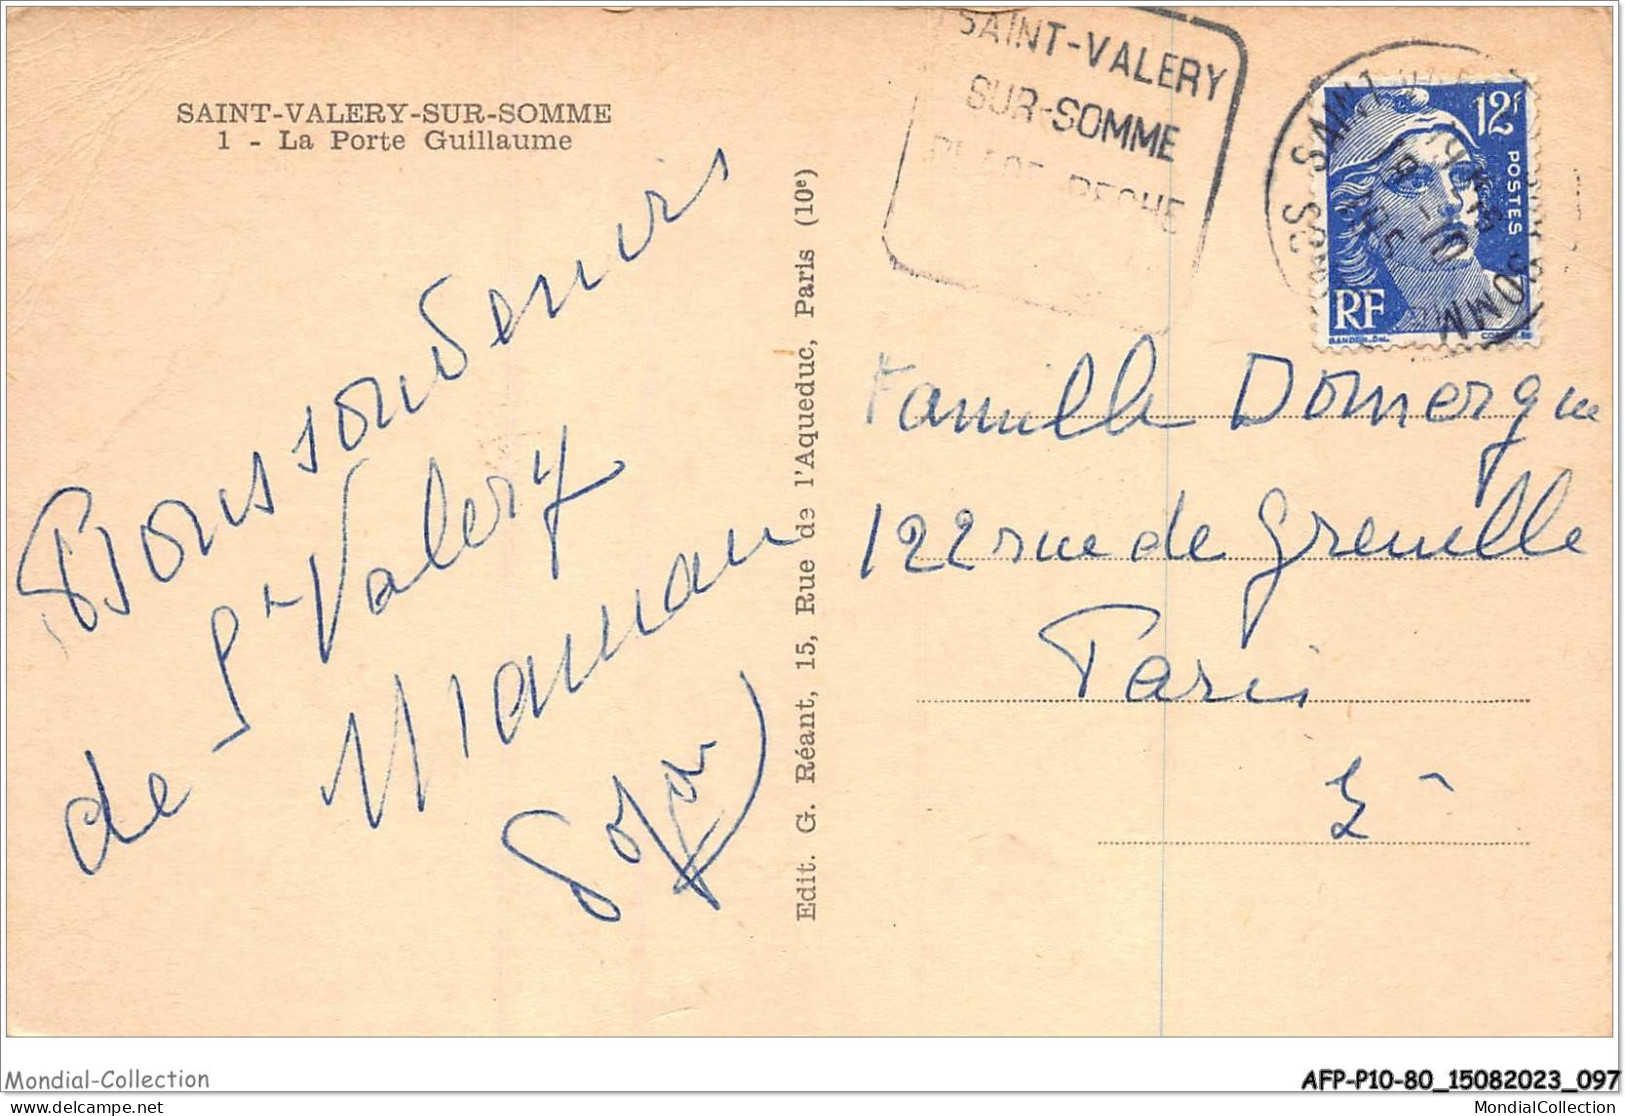 SAINT-VALERY-SUR-SOMME
1 - La Porte Guillaume
SAINT-VALERY
SUR-SOMME
PLAGE-PECHE
12f
POSTES
RF
SAINT VALERY
SOMME
Bons souvenirs
de St Valery
Maman
Edit. G. Réant, 15, Rue de l'Aqueduc, Paris (10e)
Famille Domergue
122 rue de Grenelle
Paris
Mondial-Collection
AFP-P10-80_15082023_097
delcampe.net
MondialCollection